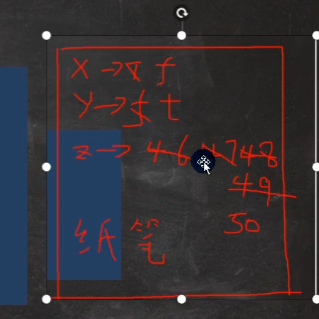 X → f
Y → t
Z → 46 47 48
49
50
纸笔